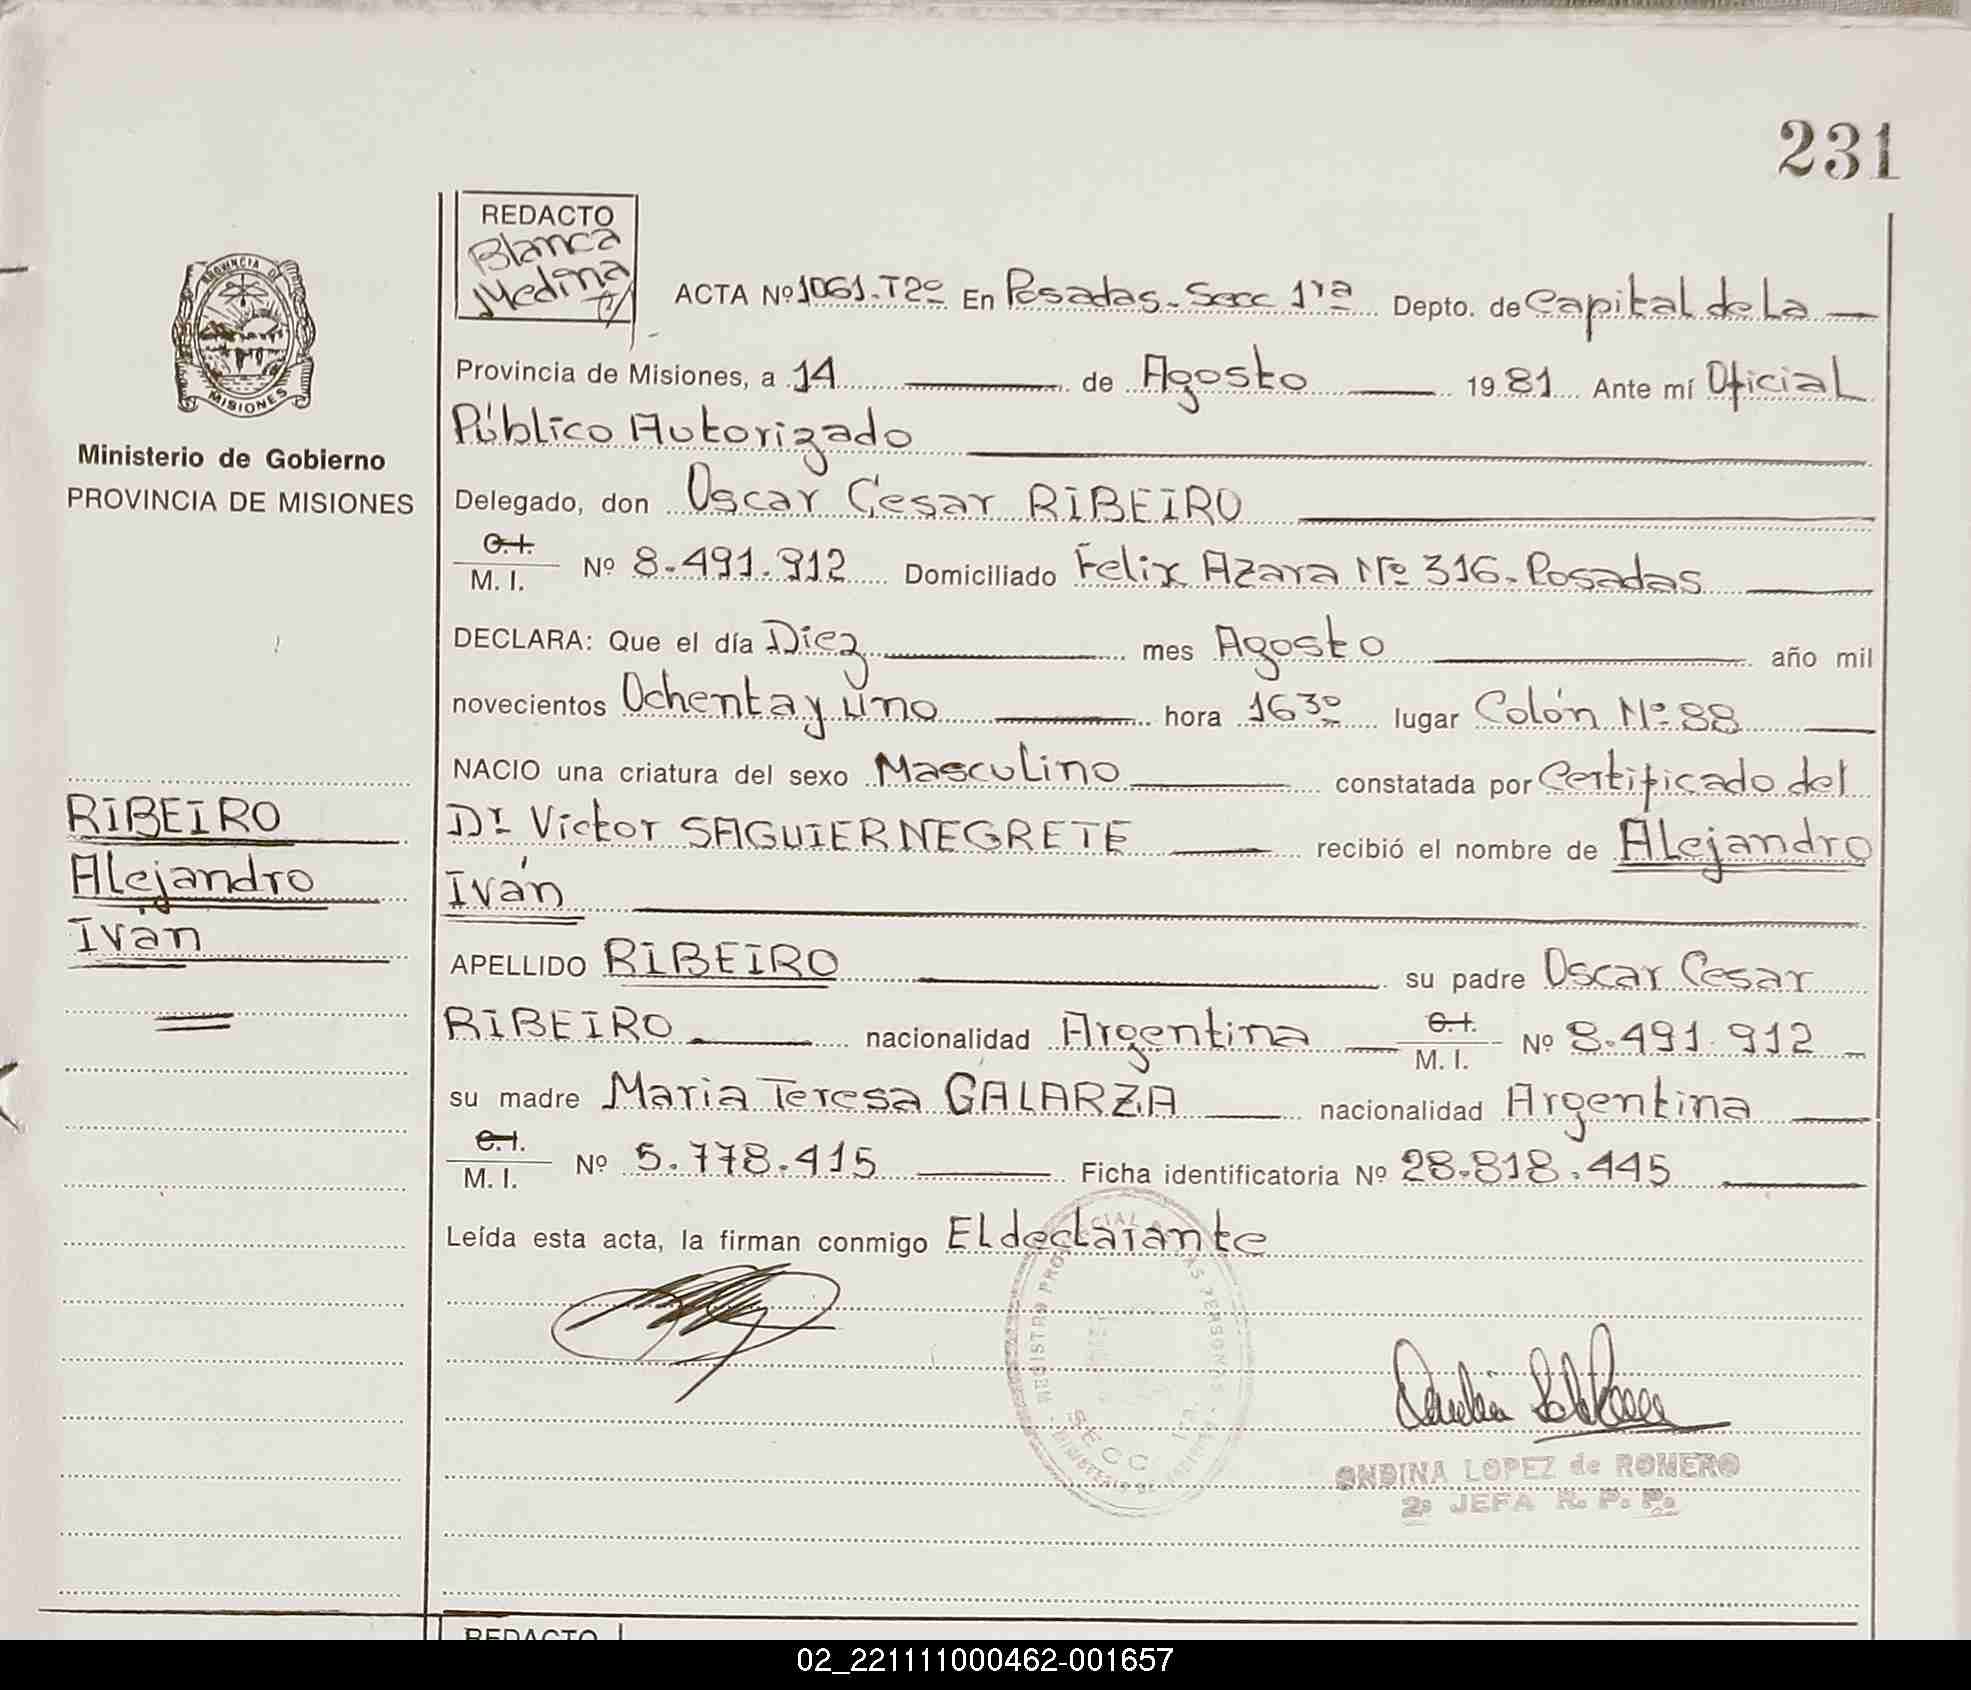 231
REDACTO
Blanca
Medina
PROVINCIA DE
MISIONES
Ministerio de Gobierno
PROVINCIA DE MISIONES
ACTA Nº 1061.T2º En Posadas-Secc 1ra Depto. de Capital de La
Provincia de Misiones, a 14 de Agosto 1981 Ante mí Oficial
Público Autorizado
Delegado, don Oscar Cesar RIBEIRO
C.I.
M. I. Nº 8.491.912 Domiciliado Felix Azara Nº 316. Posadas
DECLARA: Que el día Diez mes Agosto año mil
novecientos Ochenta y uno hora 1630 lugar Colón Nº 88
NACIO una criatura del sexo Masculino constatada por Certificado del
Dr Victor SAGUIER NEGRETE recibió el nombre de Alejandro
Iván
RIBEIRO
Alejandro
Iván
APELLIDO RIBEIRO su padre Oscar Cesar
RIBEIRO nacionalidad Argentina C.I.
M. I. Nº 8.491.912
su madre Maria Teresa GALARZA nacionalidad Argentina
C.I.
M. I. Nº 5.778.415 Ficha identificatoria Nº 28.818.445
Leída esta acta, la firman conmigo El declarante
REGISTRO PROVINCIAL DE LAS PERSONAS
SECC 1ra.
ONDINA LOPEZ de ROMERO
2ª JEFA R. P. P.
REDACTO
02_221111000462-001657